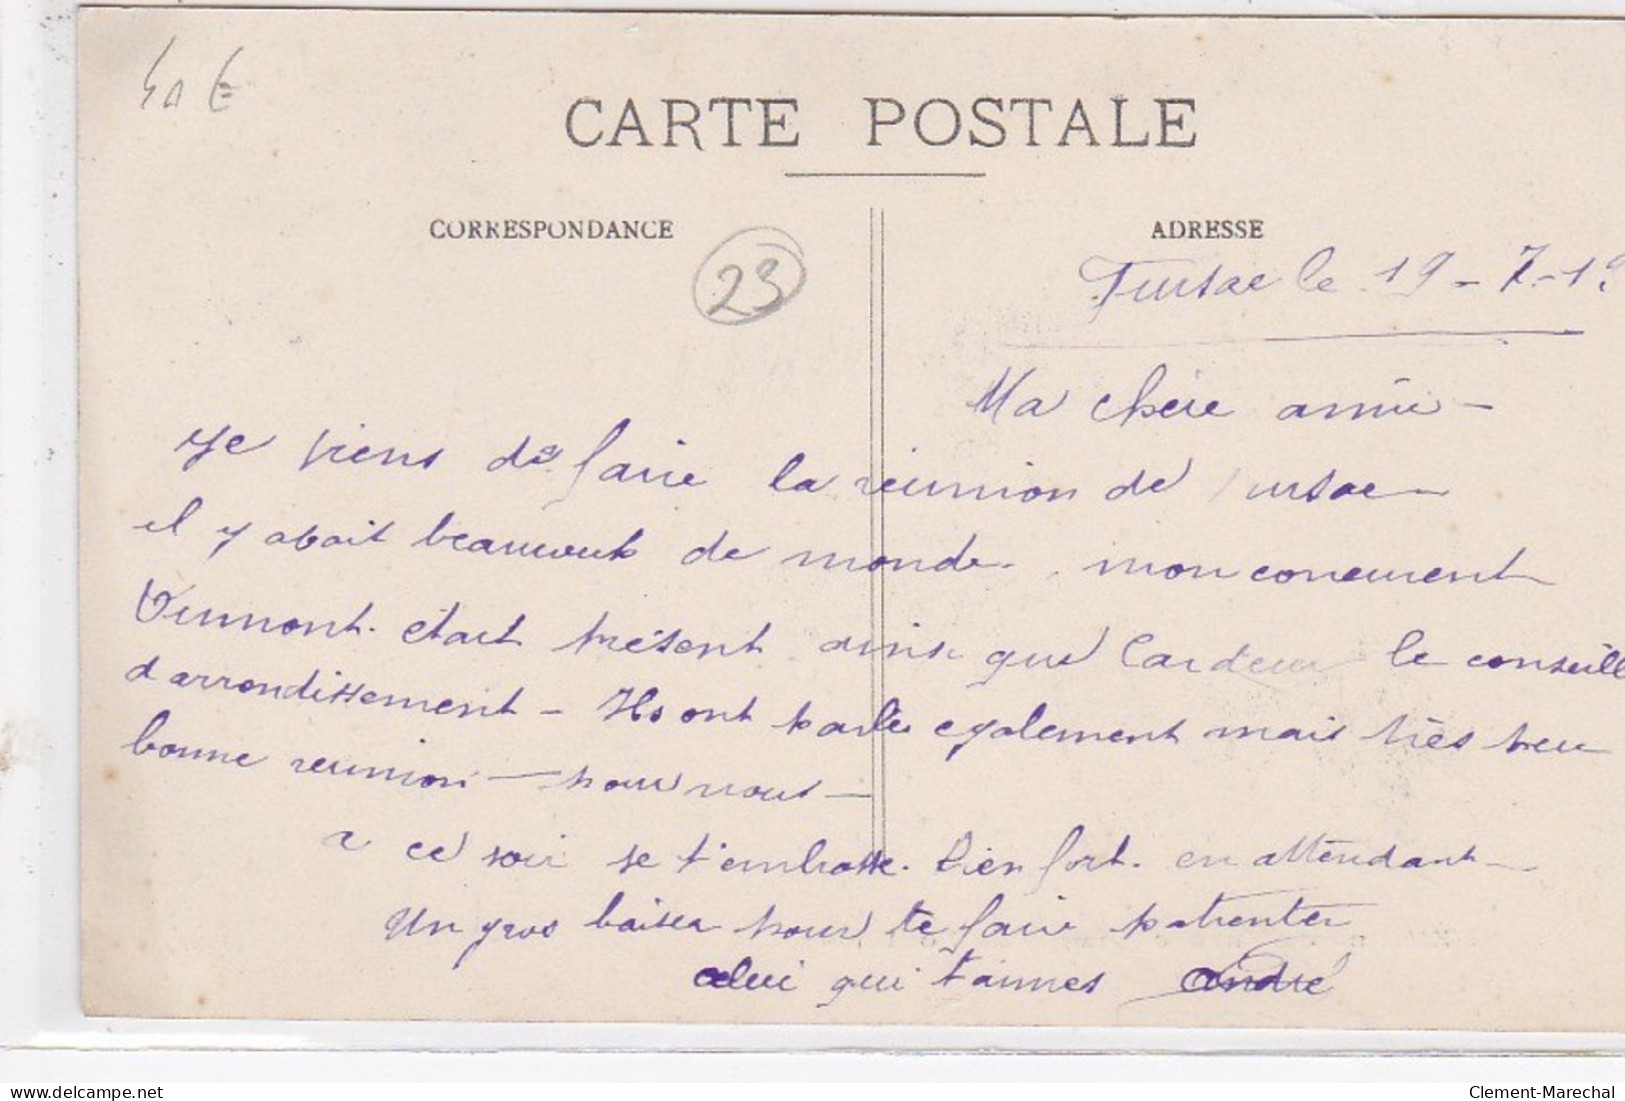 40 €
CARTE POSTALE
CORRESPONDANCE
ADRESSE
23
Fursac le 19-7-19
Ma chère amie -
Je viens de faire la réunion de Fursac -
il y avait beaucoup de monde. mon concurrent
était présent ainsi que Cardeur le conseill
d'arrondissement - Ils ont parlés egalement mais très peu
bonne reunion - pour nous -
a ce soir je t'embrasse. bien fort. en attendant -
Un gros baiser pour te faire patienter
celui qui t'aimes André
Clement-Marechal
delcampe.net